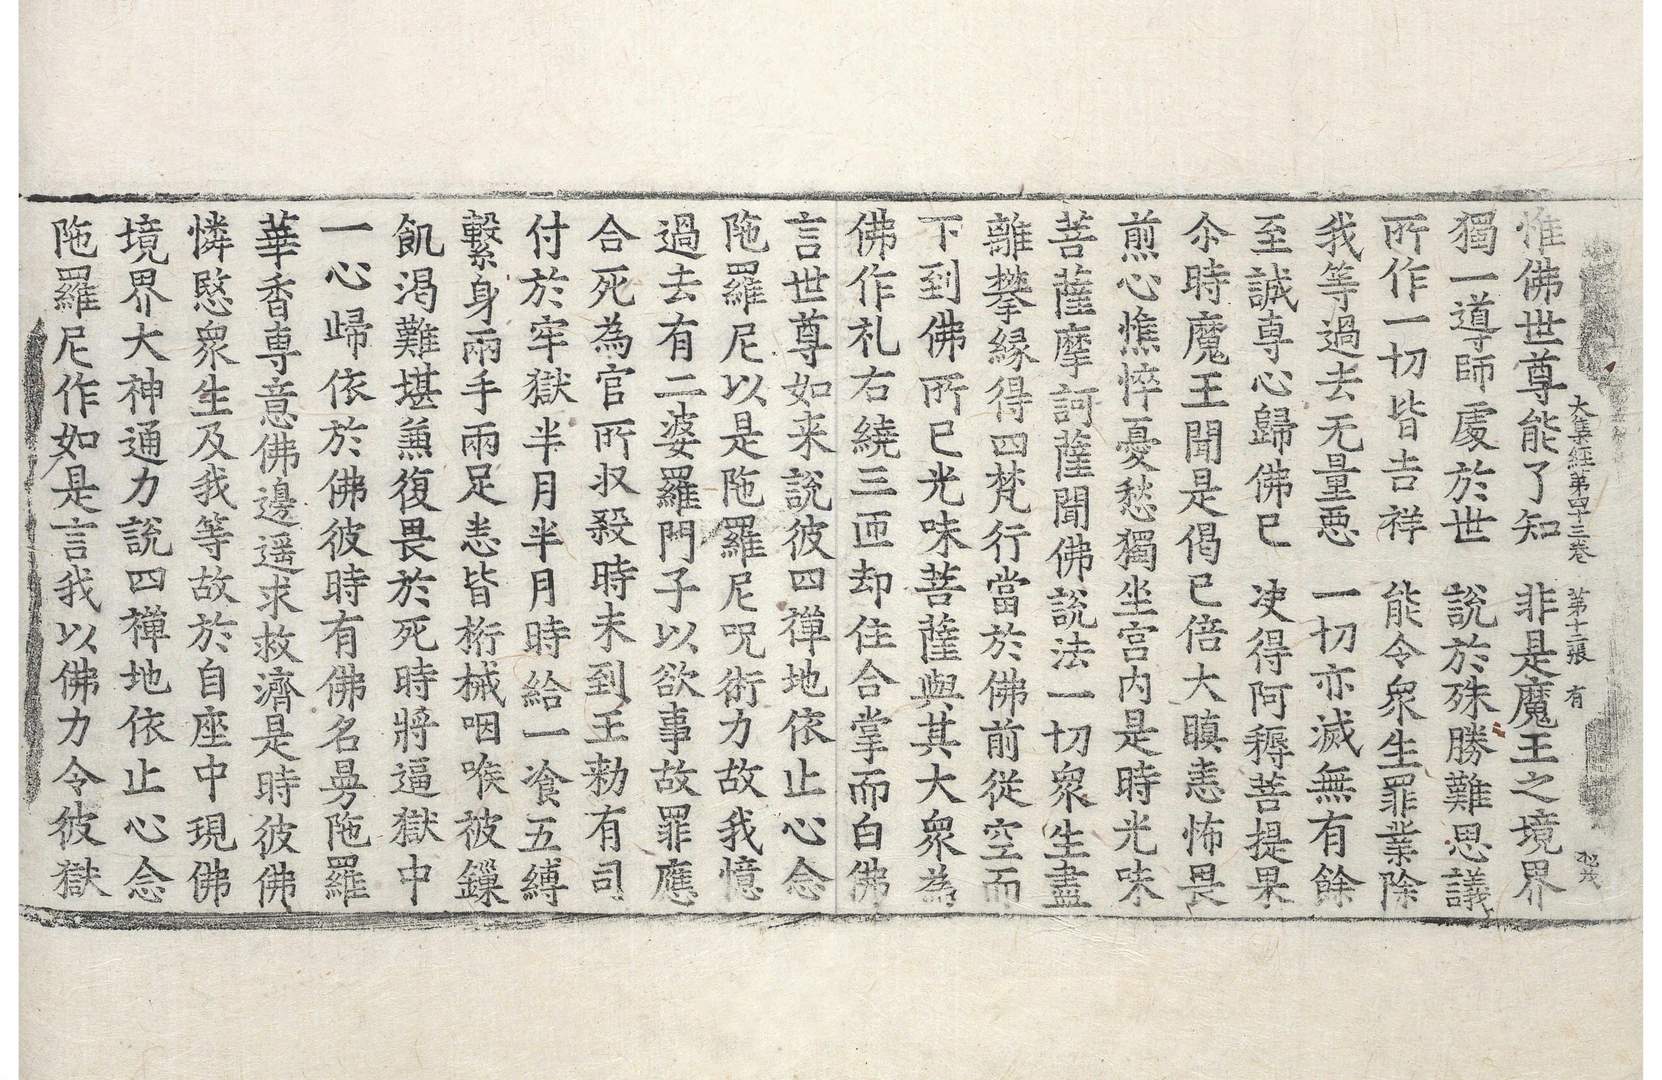 大集經第四十三卷　第十二張　有
惟佛世尊能了知　非是魔王之境界
獨一導師處於世　說於殊勝難思議
所作一切皆吉祥　能令衆生罪業除
我等過去无量惡　一切亦滅無有餘
至誠專心歸佛已　決得阿耨菩提果
尒時魔王聞是偈已倍大瞋恚怖畏
煎心憔悴憂愁獨坐宮內是時光味
菩薩摩訶薩聞佛說法一切衆生盡
離攀緣得四梵行當於佛前從空而
下到佛所已光味菩薩與其大衆為
佛作礼右繞三匝却住合掌而白佛
言世尊如来說彼四禪地依止心念
陁羅尼以是陁羅尼呪術力故我憶
過去有二婆羅門子以欲事故罪應
合死為官所收殺時未到王勑有司
付於牢獄半月半月時給一飡五縛
繫身兩手兩足恚皆桁械咽喉被鏁
飢渴難堪兼復畏於死時將逼獄中
一心歸依於佛彼時有佛名曼陁羅
華香專意佛邊遥求救濟是時彼佛
憐愍衆生及我等故於自座中現佛
境界大神通力說四禪地依止心念
陁羅尼作如是言我以佛力令彼獄